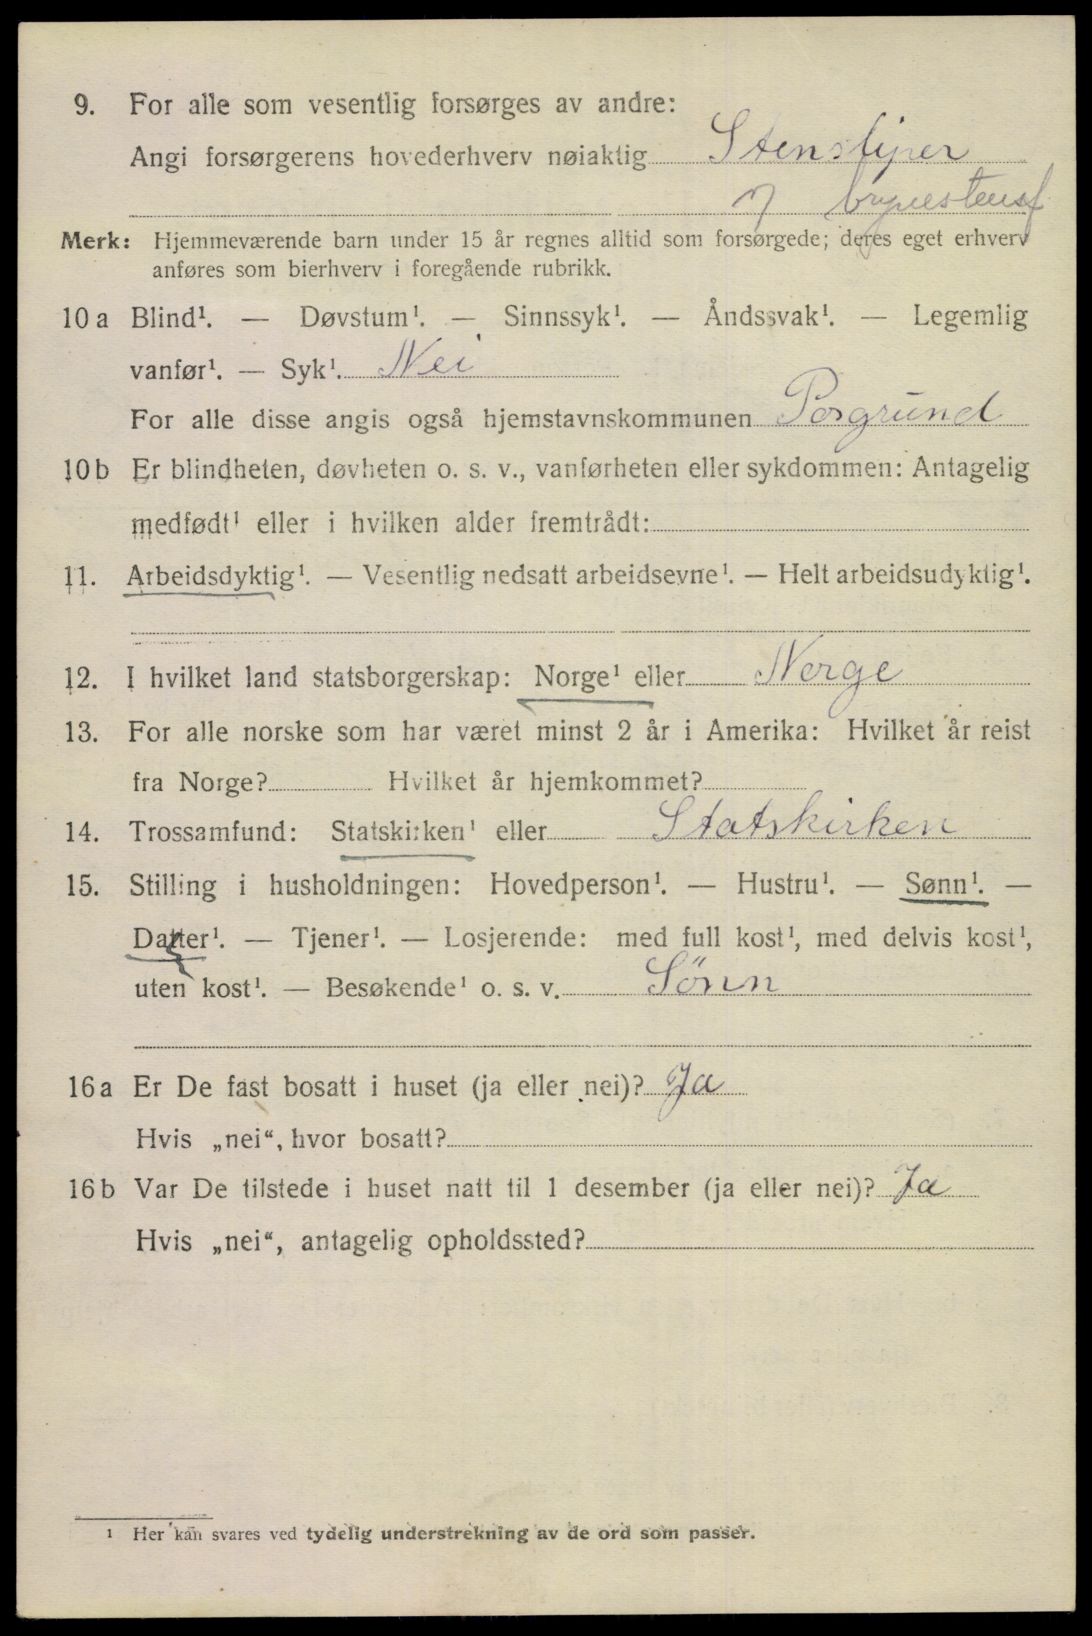 9. For alle som vesentlig forsørges av andre:
Angi forsørgerens hovederhverv nøiaktig Stensliper
brynestensf
Merk: Hjemmeværende barn under 15 år regnes alltid som forsørgede; deres eget erhverv
anføres som bierhverv i foregående rubrikk.
10 a Blind¹. — Døvstum¹. — Sinnssyk¹. — Åndssvak¹. — Legemlig
vanfør¹. — Syk¹. Nei
For alle disse angis også hjemstavnskommunen Porgrund
10 b Er blindheten, døvheten o. s. v., vanførheten eller sykdommen: Antagelig
medfødt¹ eller i hvilken alder fremtrådt:
11. Arbeidsdyktig¹. — Vesentlig nedsatt arbeidsevne¹. — Helt arbeidsudyktig¹.
12. I hvilket land statsborgerskap: Norge¹ eller Norge
13. For alle norske som har været minst 2 år i Amerika: Hvilket år reist
fra Norge? Hvilket år hjemkommet?
14. Trossamfund: Statskirken¹ eller Statskirken
15. Stilling i husholdningen: Hovedperson¹. — Hustru¹. — Sønn¹. —
Datter¹. — Tjener¹. — Losjerende: med full kost¹, med delvis kost¹,
uten kost¹. — Besøkende¹ o. s. v. Sönn
16 a Er De fast bosatt i huset (ja eller nei)? Ja
Hvis „nei“, hvor bosatt?
16 b Var De tilstede i huset natt til 1 desember (ja eller nei)? Ja
Hvis „nei“, antagelig opholdssted?
¹ Her kan svares ved tydelig understrekning av de ord som passer.